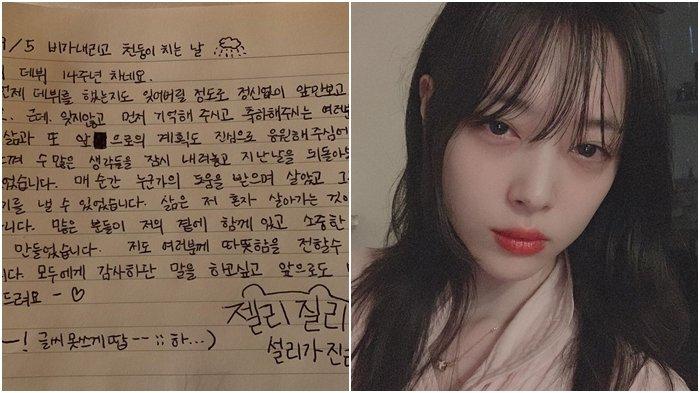 9/5 비가내리고 천둥이 치는 날
데뷔 14주년 차네요.
언제 데뷔를 했는지도 잊어버릴 정도로 정신없이 앞만보고
근데. 잊지않고 먼저 기억해 주시고 축하해주시는 여러분
삶과 또 앞으로의 계획도 진심으로 응원해주심에
느껴 수 많은 생각들을 잠시 내려놓고 지난날을 뒤돌아
었습니다. 매 순간 누군가의 도움을 받으며 살았고 그
기를 낼 수 있었습니다. 삶은 저 혼자 살아가는 것이
니다. 많은 분들이 저의 곁에 함께 있고 소중한
만들었습니다. 저도 여러분께 따뜻함을 전할수
다. 모두에게 감사하단 말을 하고싶고 앞으로도
드려요 - ♡
젤리 질리
ㅡ! 글씨 못쓰게땁 -- ;; 하...)
설리가 진